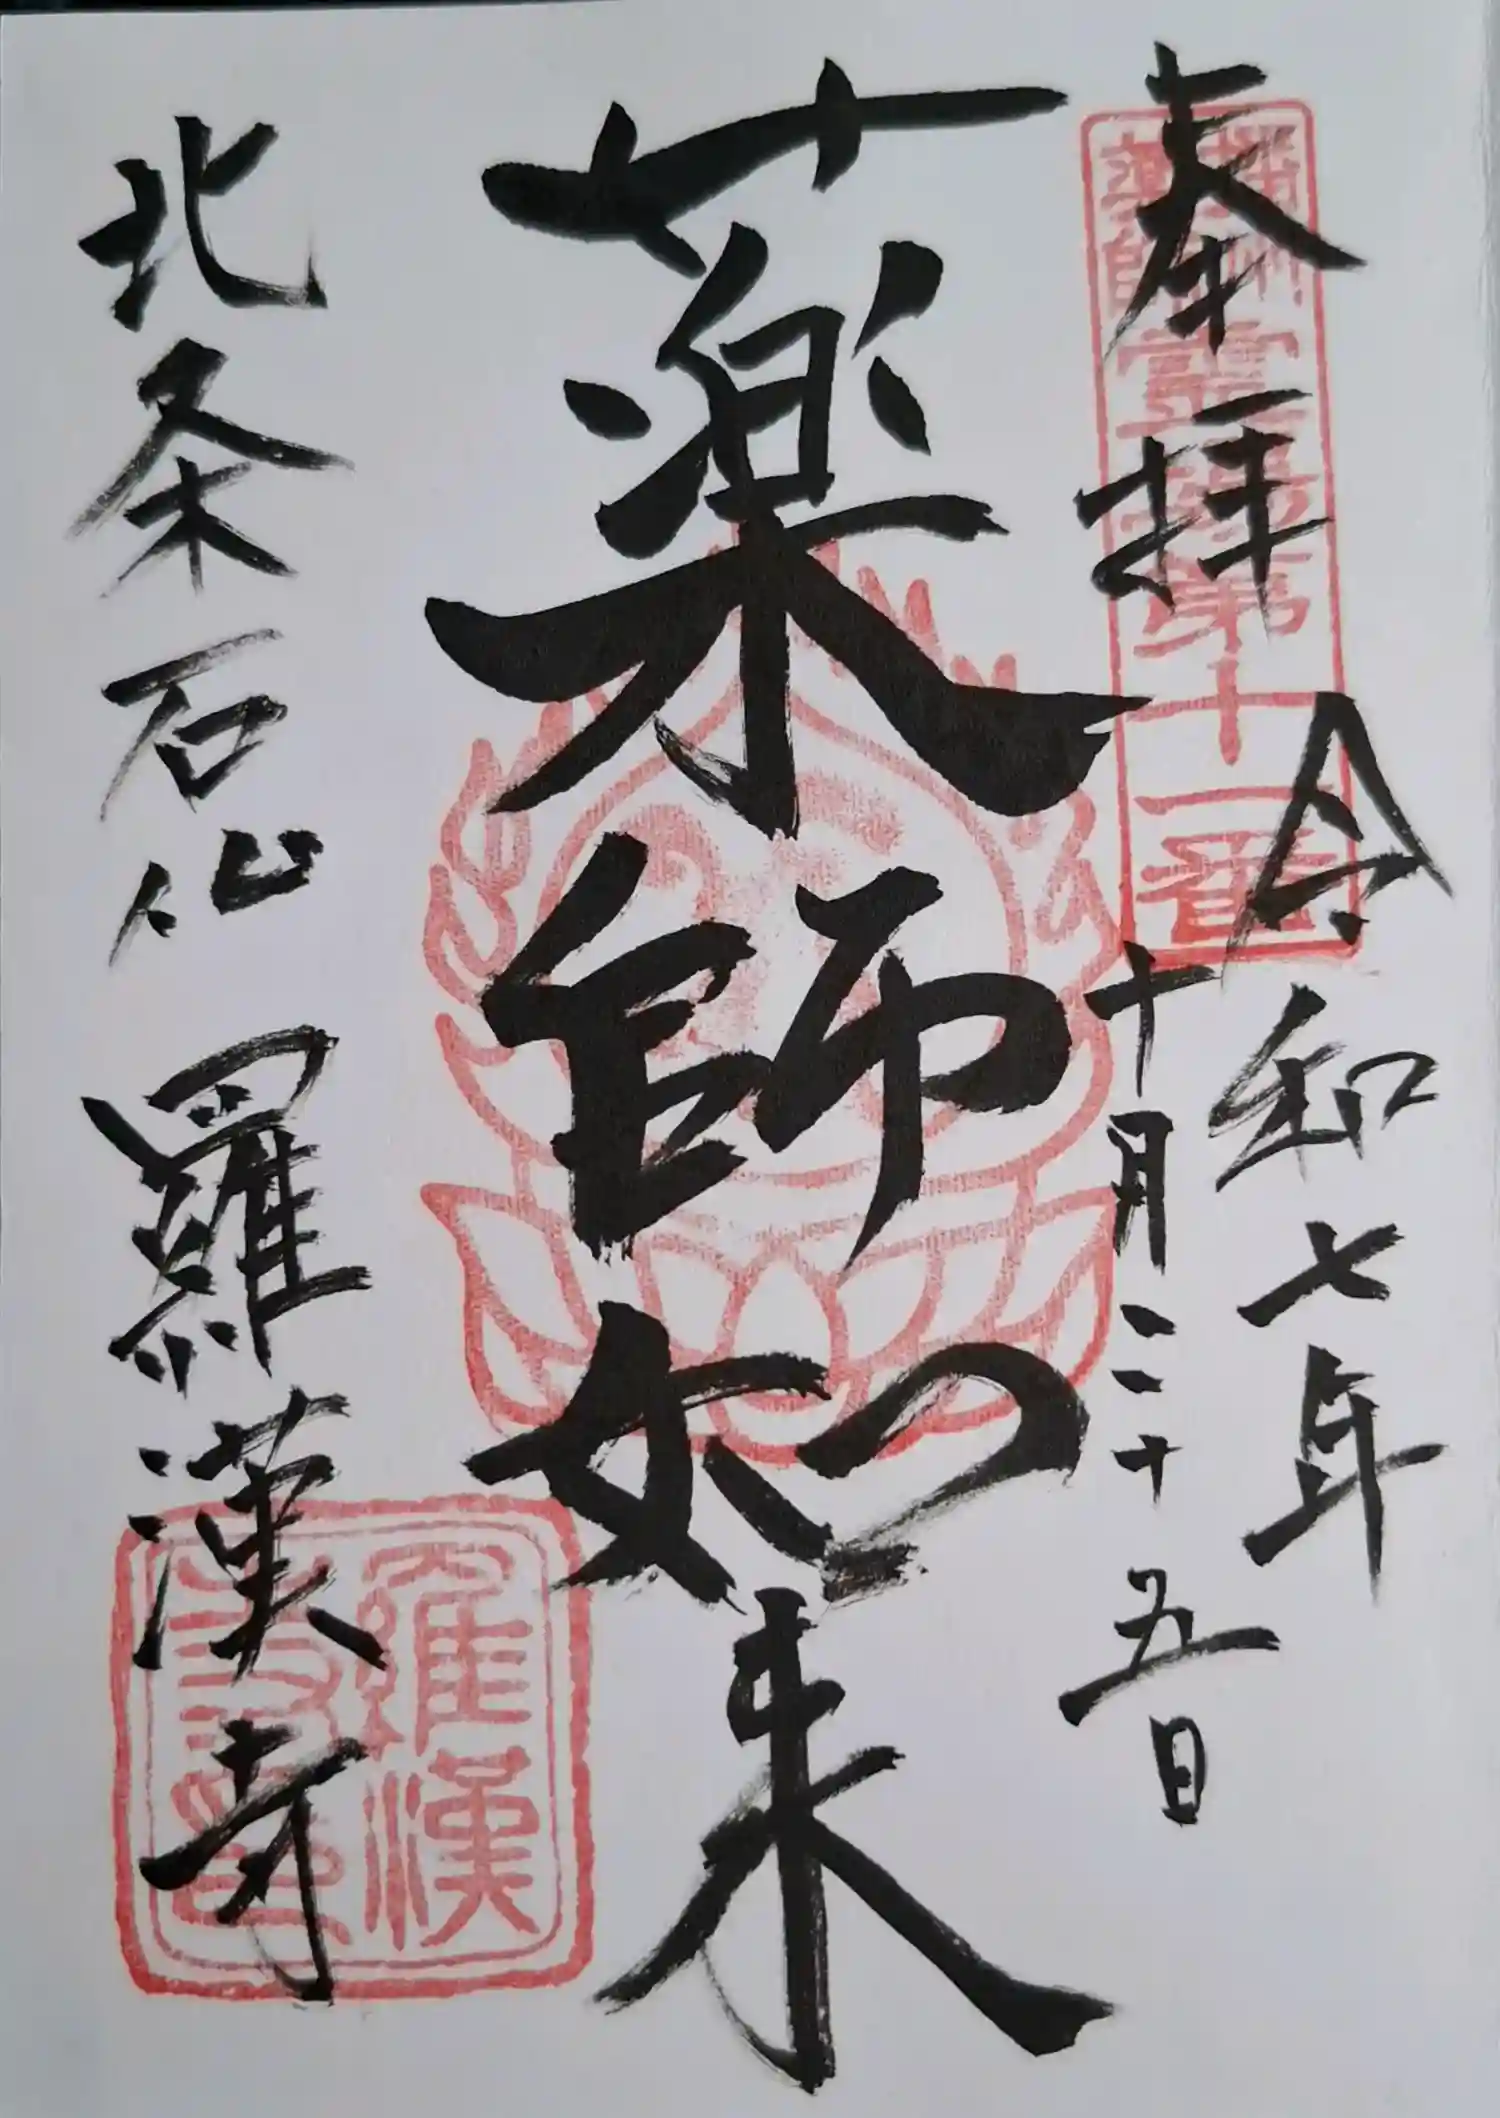 奉拝
播州
薬師
霊場第十一番
令和七年
十月二十五日
薬師如来
北条石仏 羅漢寺
羅漢